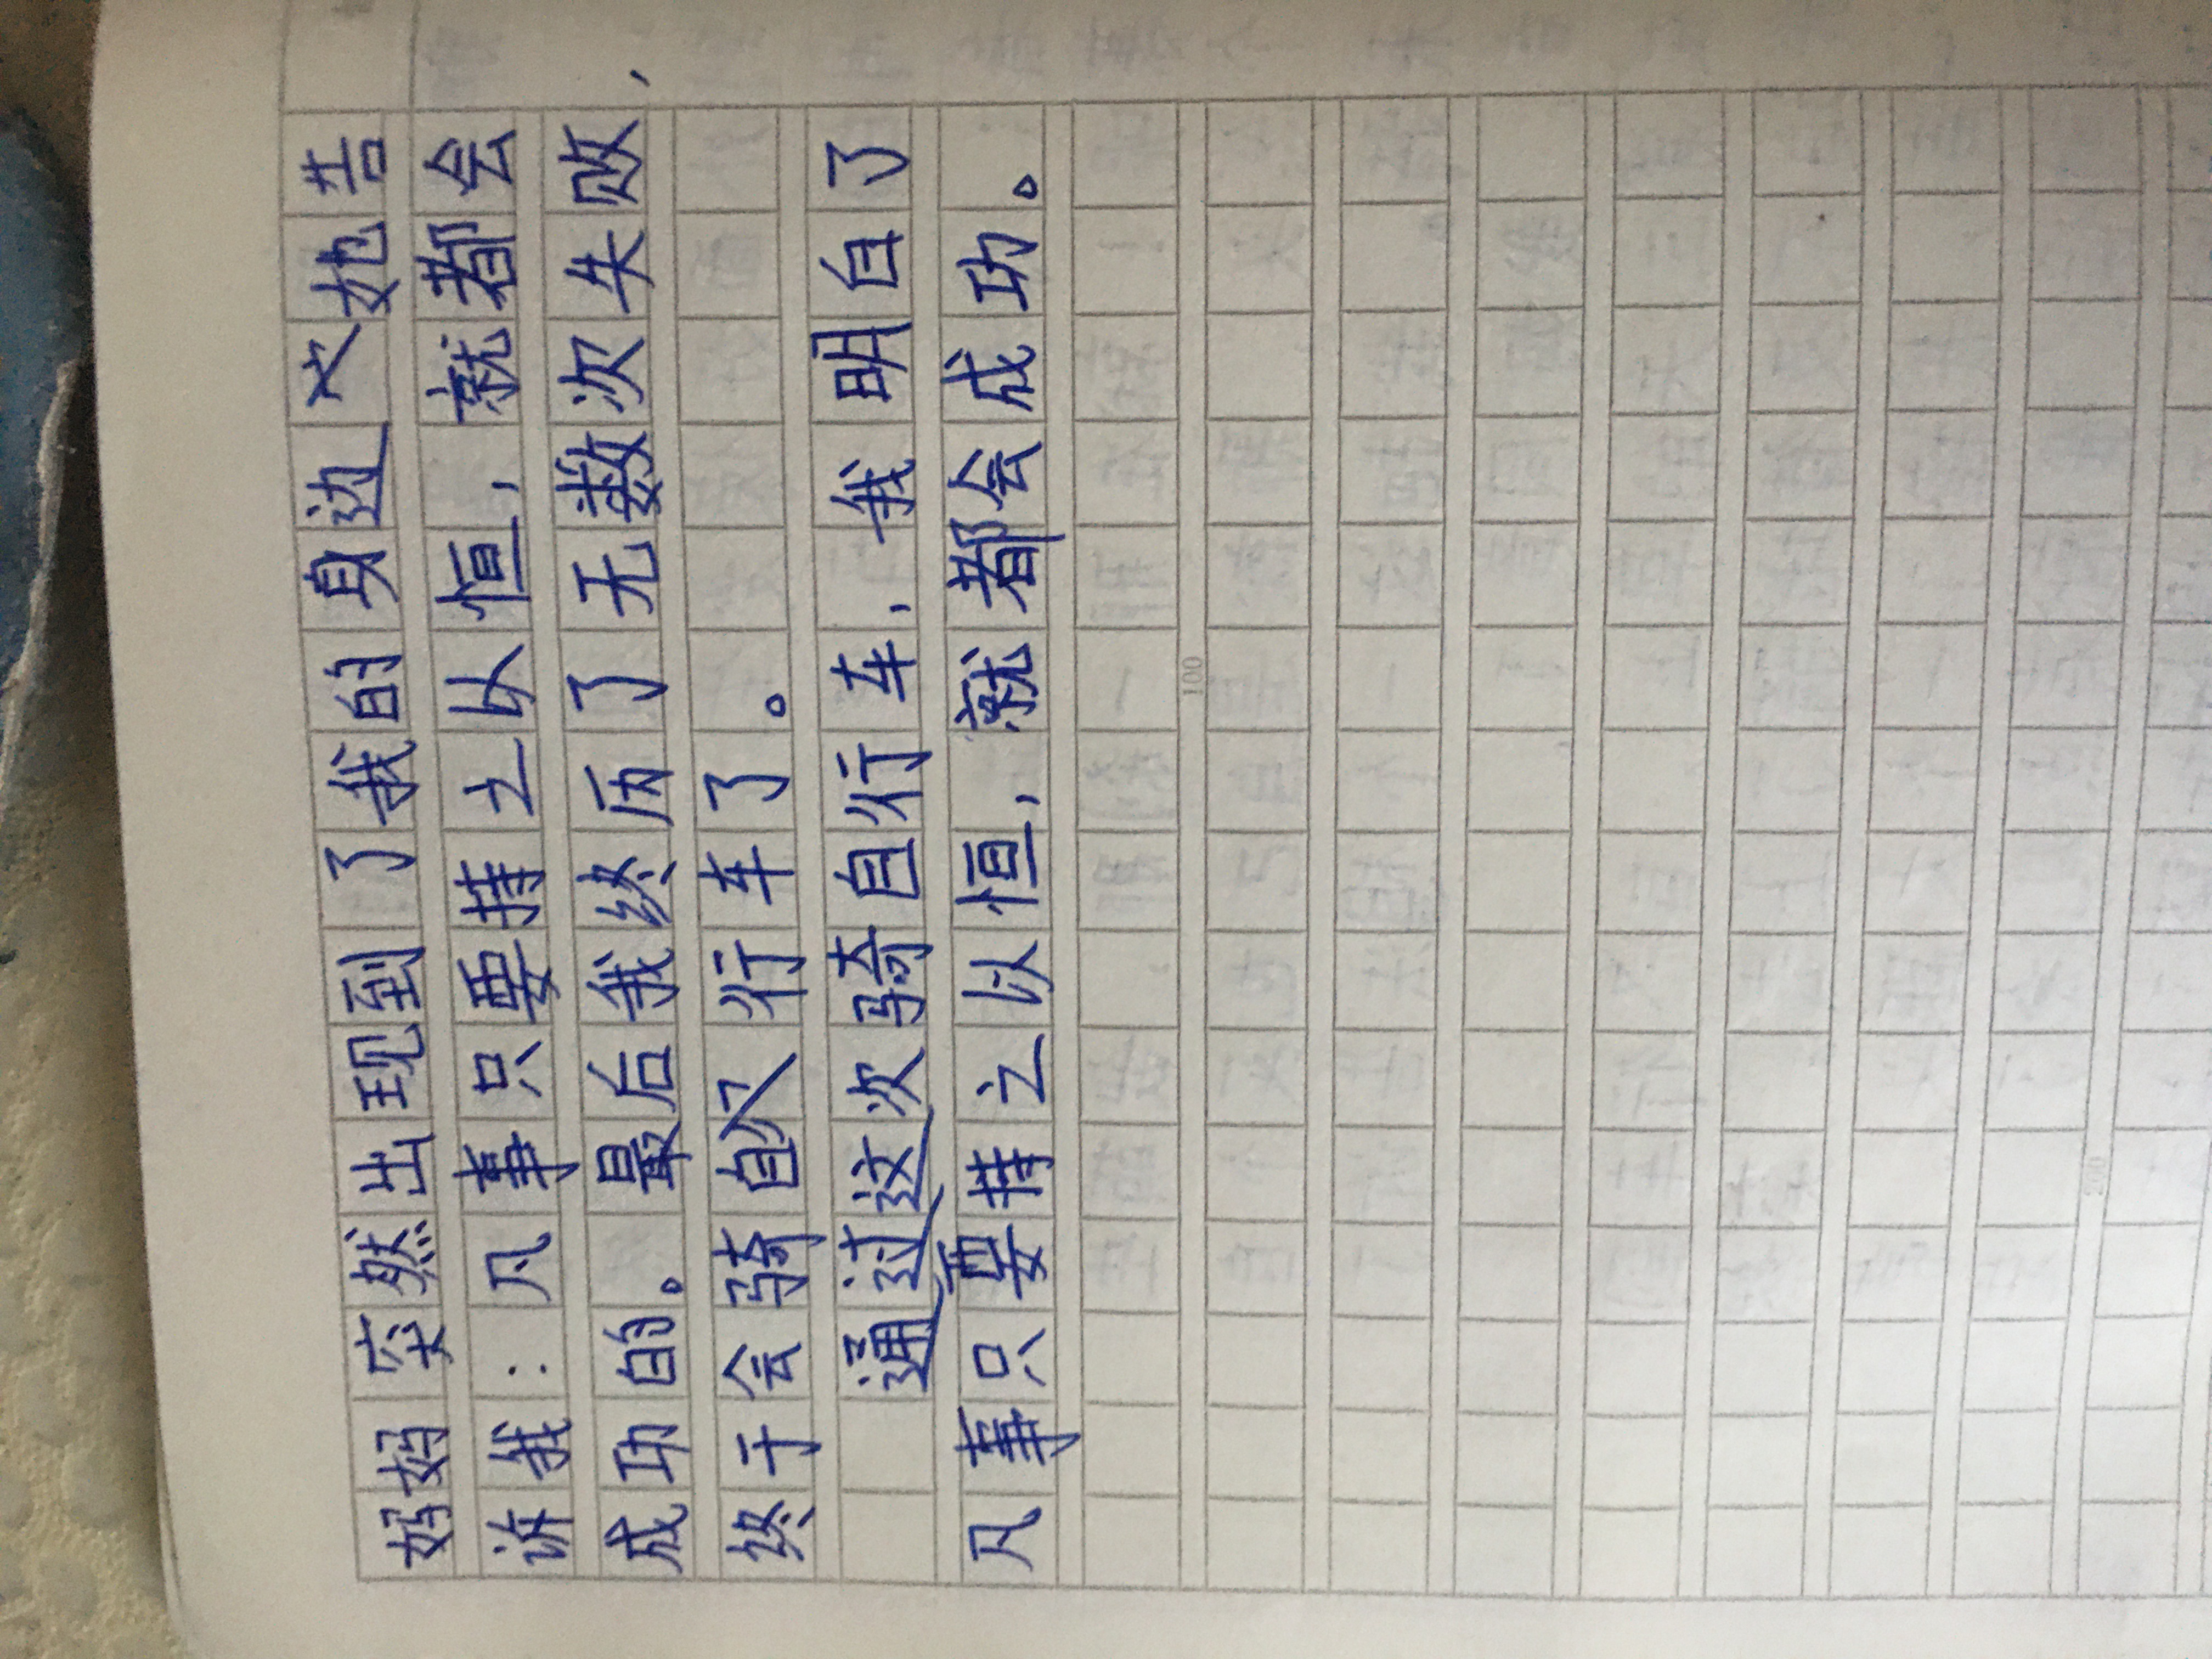 妈妈突然出现到了我的身边她告
诉我：凡事只要持之以恒，就都会
成功的。最后我终历了无数次失败，
终于会骑自行车了。
通过这次骑自行车，我明白了
凡事只要持之以恒，就都会成功。
100
200